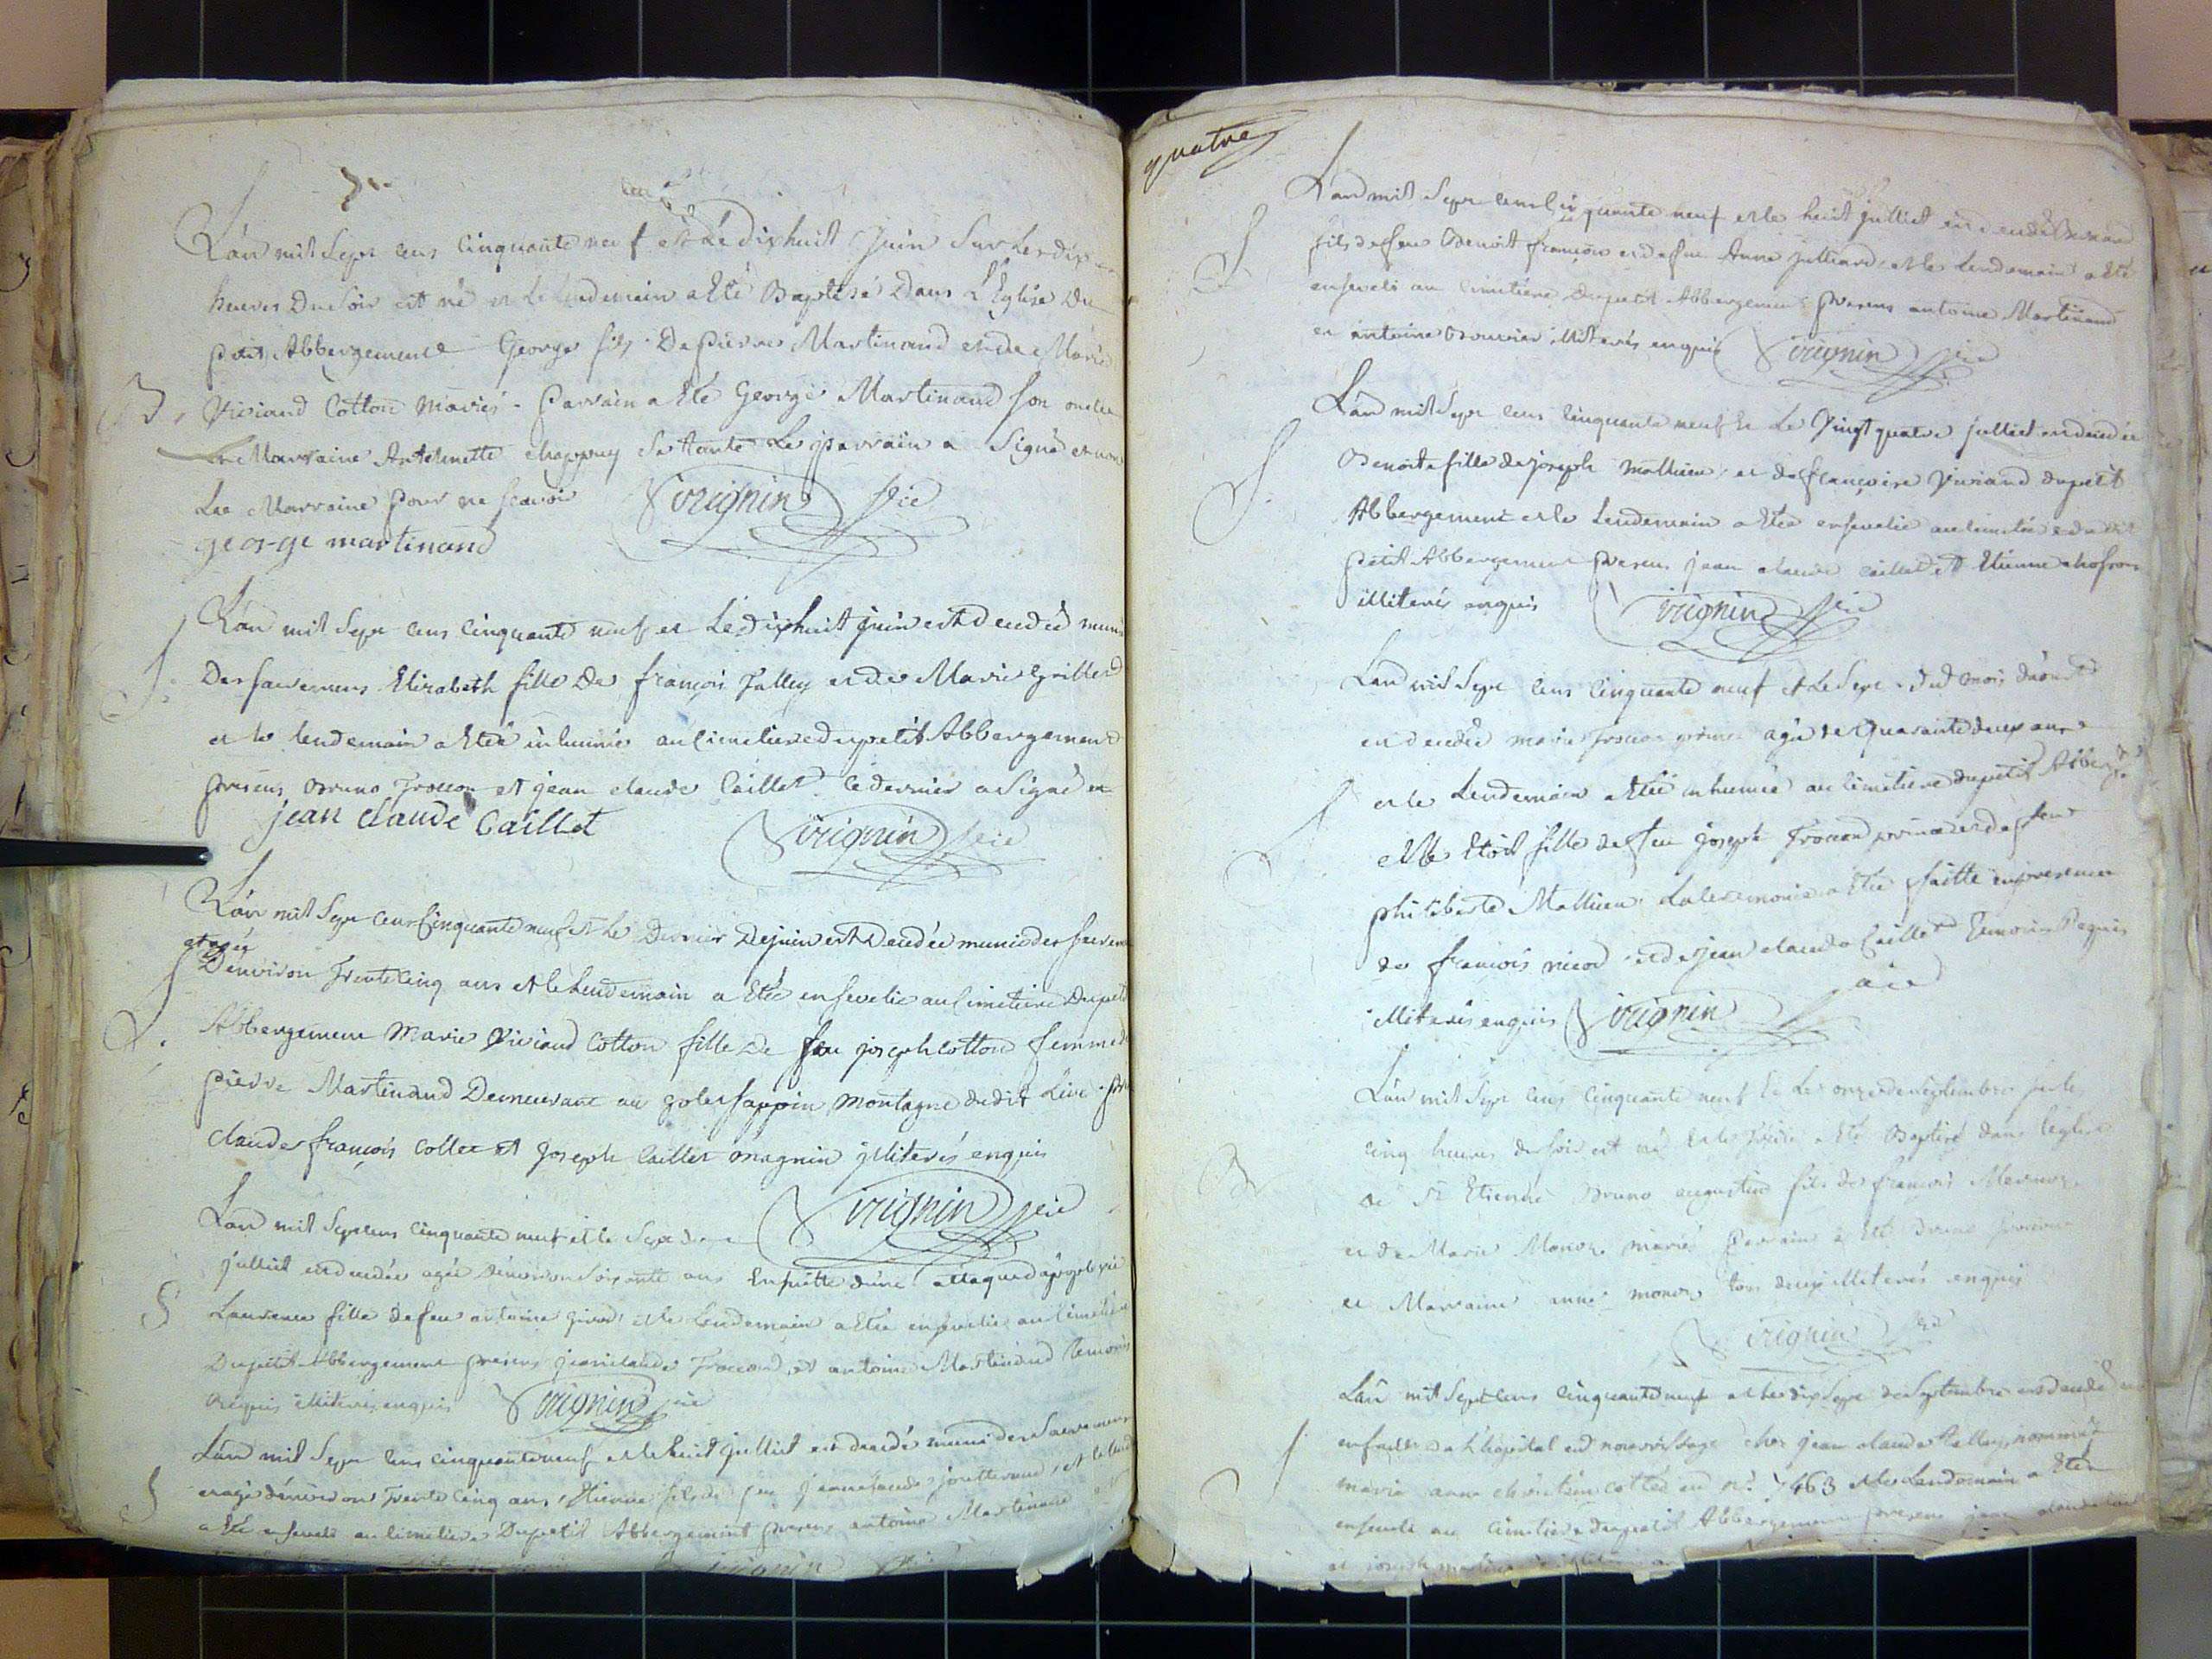 L'an mil Sept cens Cinquante neuf et Le dix huit Juin Sur Les dix
heures du Soir est né et Le Lendemain a Eté Baptisé Dans L'Eglise Du
petit Abbergement George fils De pierre Martinand et de Marie
Viviand Cotton Mariés parrain a Eté George Martinand Son oncle
et Marraine Antoinette chappuy Sa tante Le parrain a Signé et non
La Marraine pour ne Scavoir Virignin Vic
george martinand
L'an mil Sept cens Cinquante neuf et Le dix huit Juin est décédée munie
des Sacremens Elizabeth fille De françois Talley et de Marie Guillet
et le lendemain a Etée inhumée au Cimetiere du petit Abbergement
presens Bruno Troccon et jean claude Caillet Ce dernier a Signé
jean claude Caillet Virignin Vic
L'an mil Sept cens Cinquante neuf et Le Dernier De juin est Decédée munie des Sacrem
et agée
D'environ Trente Cinq ans et le Lendemain a Etée ensevelie au Cimetiere Du petit
Abbergement Marie Viviand Cotton fille De feu joseph Cotton femme de
pierre Martinand Demeurant au goler Sappin Montagne dudit Lieu
claude françois Collet et joseph Caillet magnin illiterés enquis
Virignin Vic
L'an mil Sept cens Cinquante neuf et le Sept de
juillet est decedée agée d'environ Soixante ans Ensuitte d'une attaque d'apoplexie
Laurence fille de feu antoine girod et le Lendemain a Etée ensevelie au Cimetiere
Du petit Abbergement presens jean claude Troccond et antoine Martinand Temoins
Requis illiterés enquis Virignin Vic
L'an mil Sept cens Cinquante neuf et le huit juillet est decedé muni des Sacremens
et agé d'environ Trente Cinq ans Etienne fils de feu et le
a Eté enseveli au Cimetiere Du petit Abbergement presens antoine Martinand
Virignin Vic
quatre
L'an mil Sept cens Cinquante neuf et le huit juillet est decedé
fils de feu Benoit françois et de feue Anne julliard et le Lendemain a Eté
enseveli au Cimitiere du petit Abbergement presens antoine Martinand
et antoine Bouvier illiterés enquis Virignin Vic
L'an mil Sept cens Cinquante neuf et Le Vingt quatre juillet est decedée
Benoite fille de joseph Mathieu et de françoise Viviand du petit
Abbergement et le Lendemain a Etée ensevelie au Cimetiere dudit
petit Abbergement presens jean claude Caillet et Etienne
illiterés enquis Virignin Vic
L'an mil Sept cens Cinquante neuf et Le Sept dud mois d'aoust
est decedée marie Troccon agée de Quarante deux ans
et le Lendemain a Etée inhumée au Cimetiere du petit Abberg
elle Etoit fille de feu joseph Troccon et de feue
philiberte Mathieu La Ceremonie a Etée faitte en presence
de françois nicod et de jean claude Caillet Temoins Requis
illiterés enquis Virignin Vic
L'an mil Sept cens Cinquante neuf et Le onze de Septembre Sur les
cinq heures du Soir est né et le a Eté Baptisé dans l'église
de St Etienne Bruno augustin fils de françois
et de Marie mariés Parrain a Eté Bruno
et Marraine anne tous deux illiterés enquis
Virignin Vic
L'an mil Sept cens Cinquante neuf et Le dix Sept de Septembre est decedé un
enfant de L'hôpital en nourrissage chez jean claude Talley nommée
marie anne cottée au n° 7463 et le Lendemain a Etée
enseveli au Cimetiere du petit Abbergement presens jean claude
et joseph